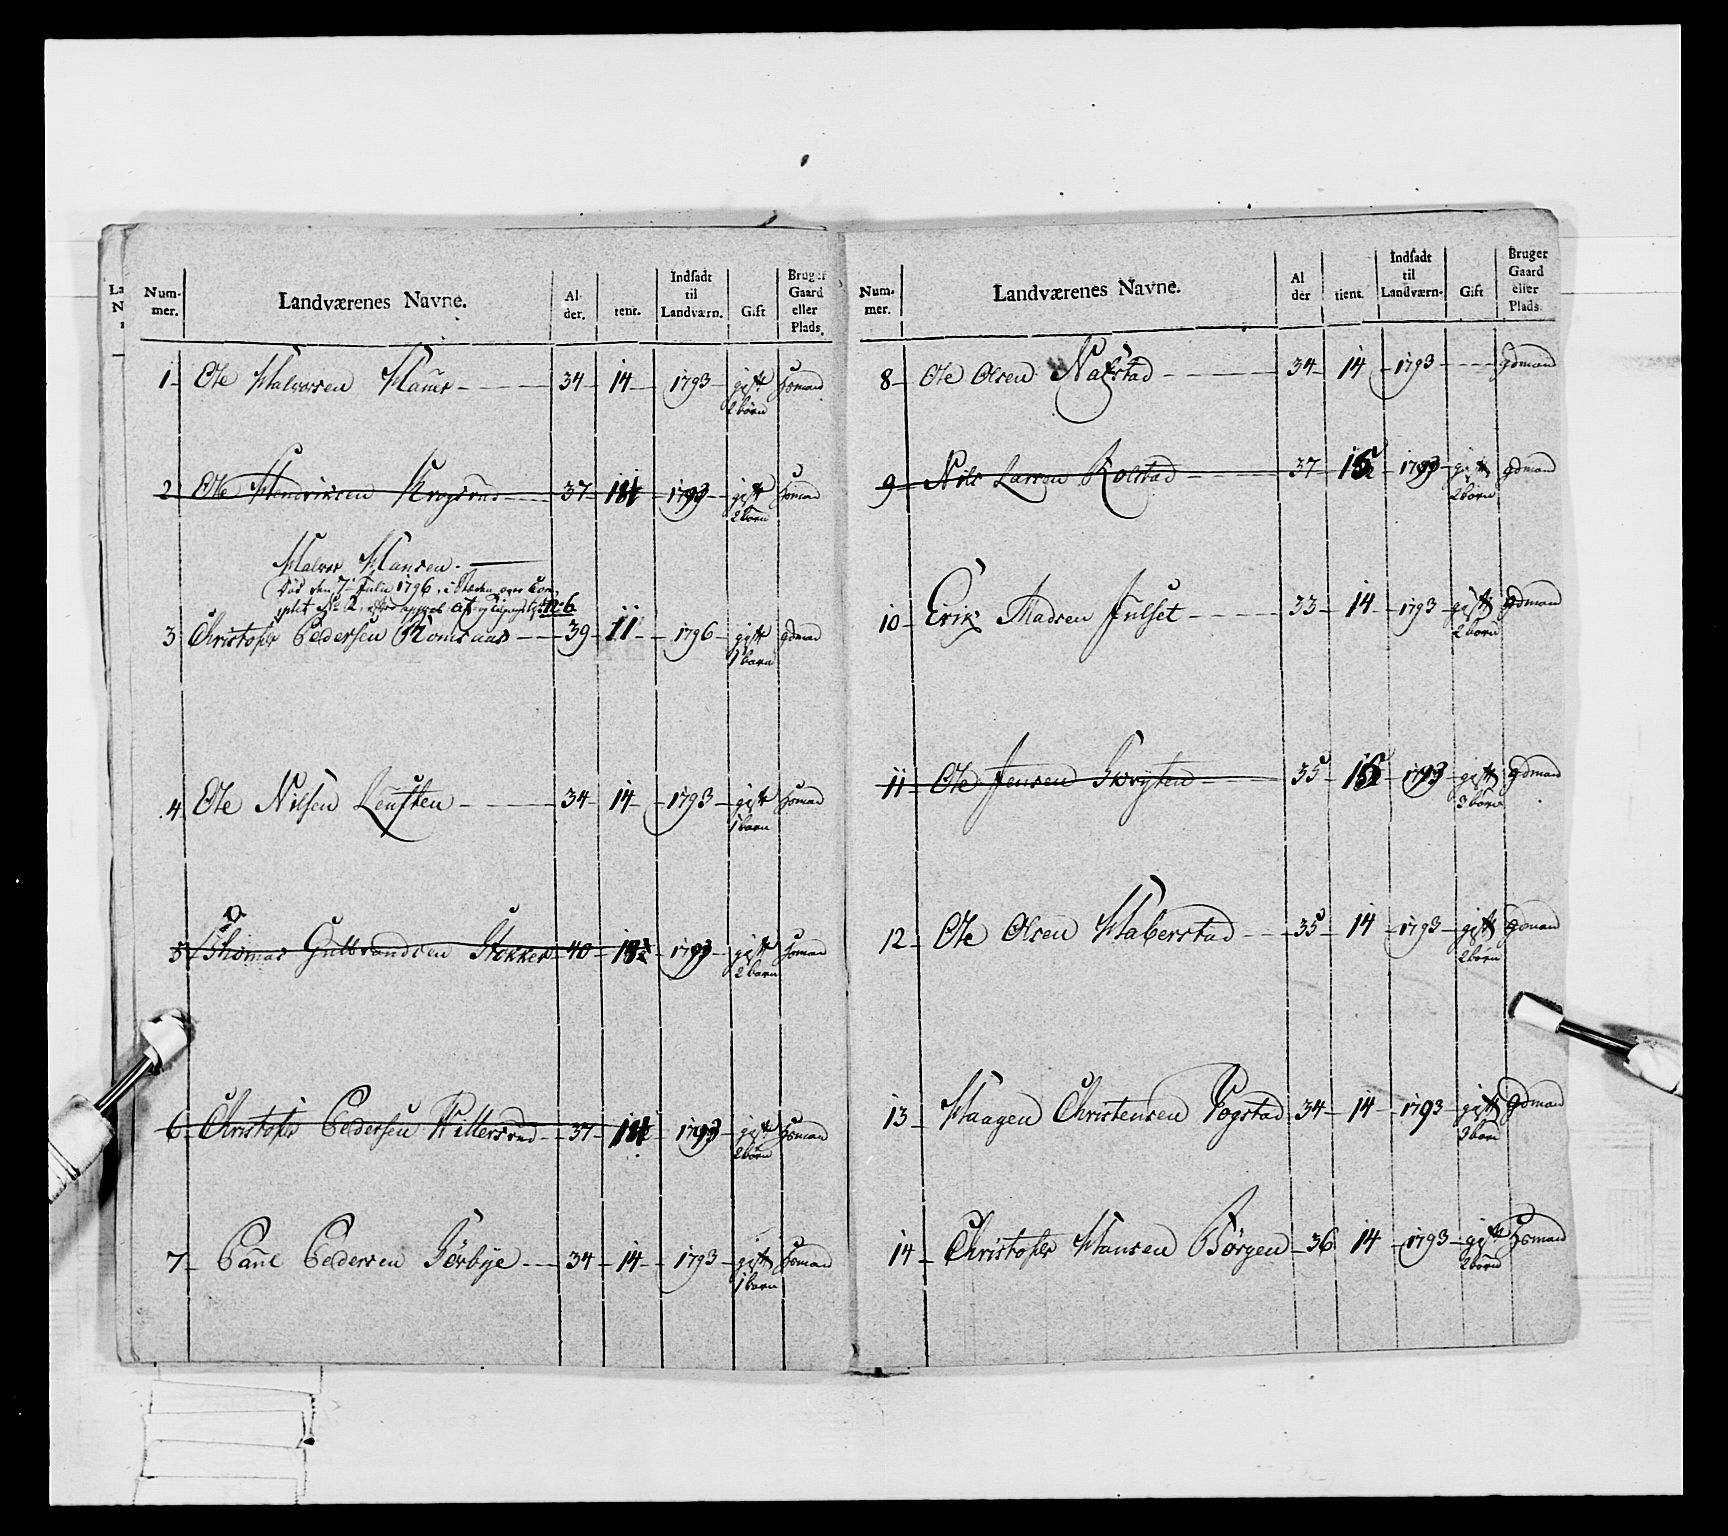 Num-mer. Landværenes Navne. Al-der. tent. Indsadt til Landværn. Gift Bruger Gaard eller Plads.
1 Ole Halvorsen Haüer 34 14 1793 gift 2 børn Hsmand
2 Ole Hendriksen Krogsrud 37 1793 gift 2 børn Hsmand
Halvor Hansen
død den 7 Julii 1796, i Steden
No 6
3 Christofer Pedersen Romsaas 39 11 1796 gift 1 barn gdmand
4 Ole Nilsen 34 14 1793 gift 1 barn Hsmand
5 Thomas Gulbrandsen Stokker 40 1793 gift 2 barn Hsmand
6 Christofer Pedersen Willersrud 37 1793 gift 2 børn Hsmand
7 Paul Pedersen Sørbye 34 14 1793 gift 1 barn Hsmand
Num-mer. Landværenes Navne. Al der tient. Indsadt til Landværn. Gift Bruger Gaard eller Plads.
8 Ole Olsen Nakstad 34 14 1793 gdmand
9 Nils Larsen Kolstad 37 1793 gift 2 børn gdmand
10 Erik Madsen Julset 33 14 1793 gift 2 børn gdmand
11 Ole Jensen 35 1793 gift 3 børn gdmand
12 Ole Olsen Haberstad 35 14 1793 gift 2 børn gdmand
13 Haagen Christensen Fogstad 34 14 1793 gift 3 børn gdmand
14 Christofer Hansen Børgen 36 14 1793 gift 2 børn Hsmand